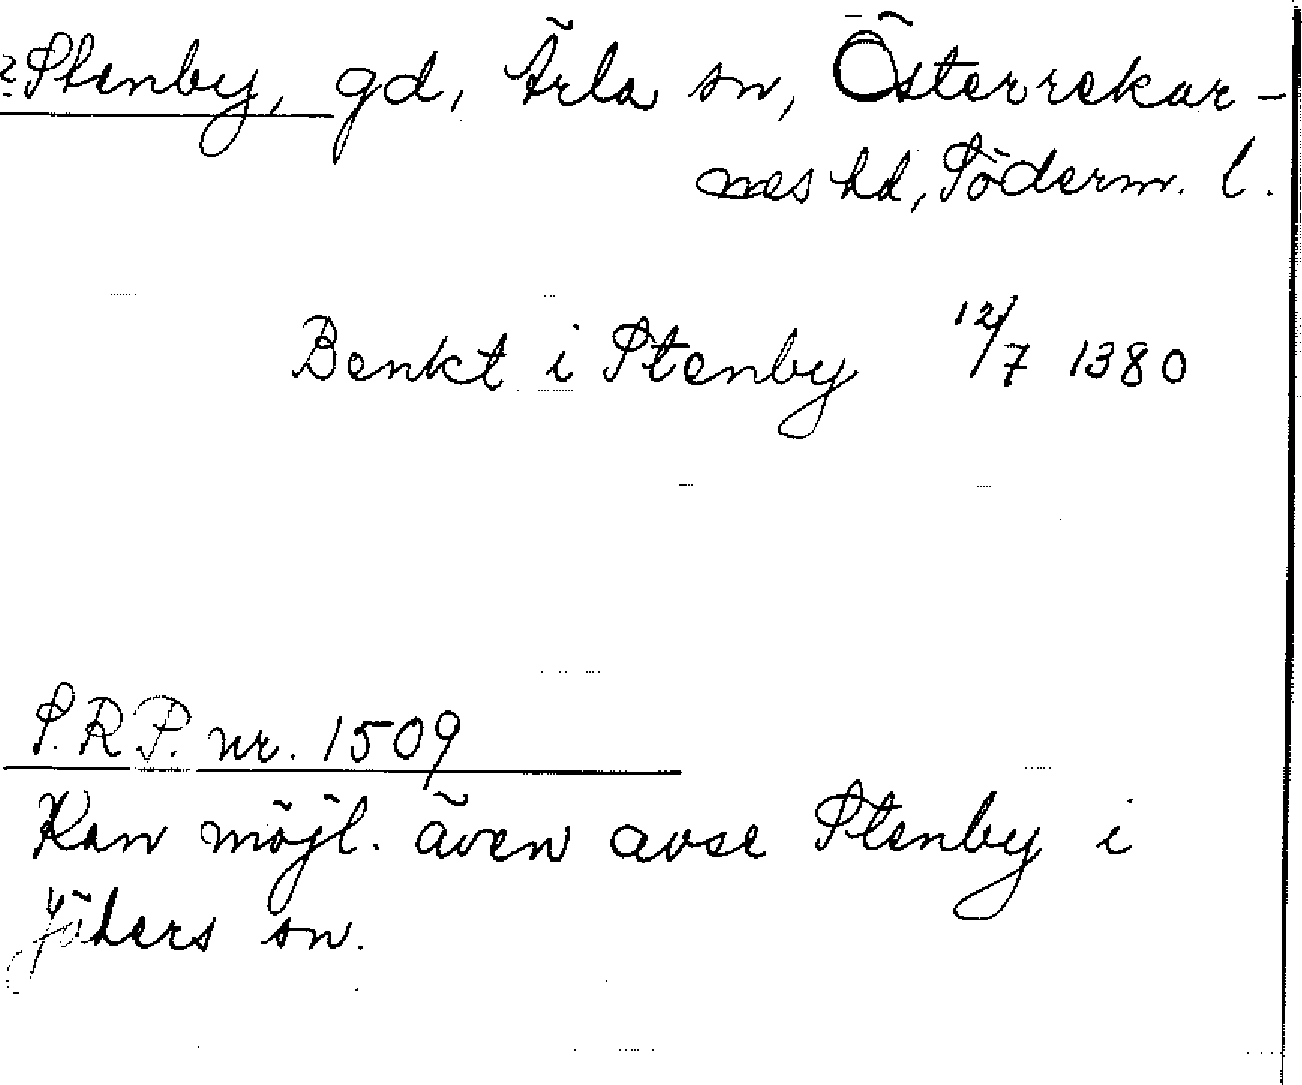 ? Stenby, gd, Ärla sn, Österrekar-
nes hd, Söderm. l.
Benkt i Stenby 12/7 1380
S.R.P. nr. 1509
Kan möjl. även avse Stenby i
Jäders sn.